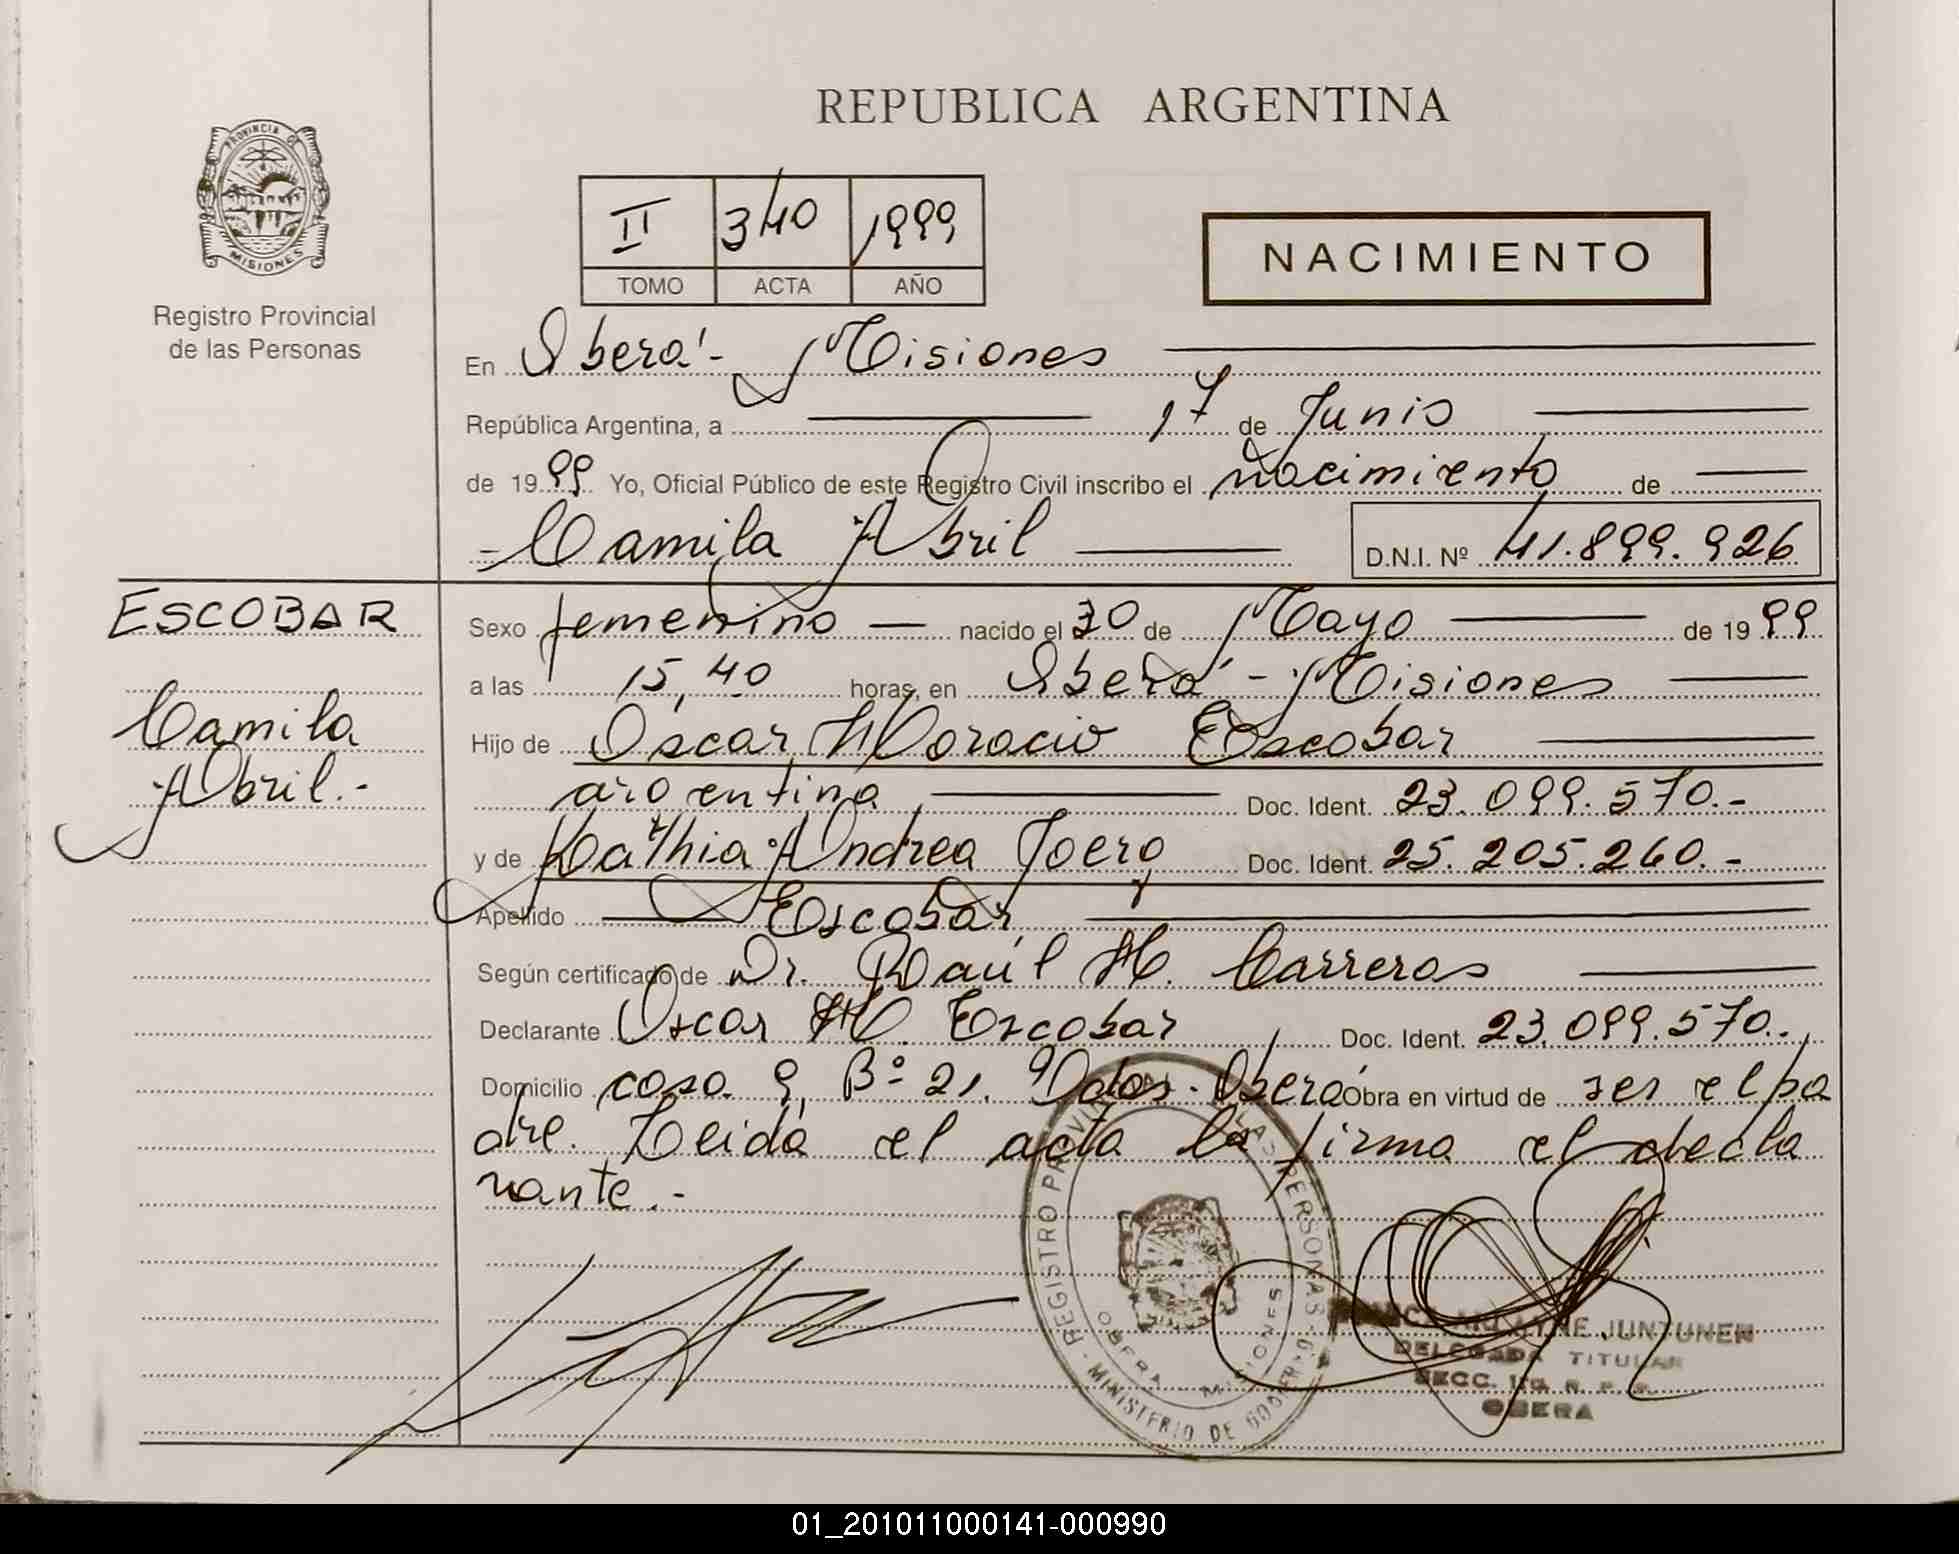 REPUBLICA ARGENTINA
PROVINCIA DE
MISIONES
Registro Provincial
de las Personas
II 340 1999
TOMO ACTA AÑO
NACIMIENTO
En Oberá - Misiones
República Argentina, a 17 de Junio
de 1999 Yo, Oficial Público de este Registro Civil inscribo el nacimiento de
- Camila Abril D.N.I. Nº 41.899.926
ESCOBAR
Camila
Abril.-
Sexo femenino nacido el 30 de Mayo de 1999
a las 15,40 horas, en Oberá - Misiones
Hijo de Oscar Horacio Escobar
argentina Doc. Ident. 23.099.570.-
y de Kathia Andrea Joerg Doc. Ident. 25.205.260.-
Apellido Escobar
Según certificado de Dr. Raúl H. Carreras
Declarante Oscar H. Escobar Doc. Ident. 23.099.570.
Domicilio casa 9, Bº 21. Oberá Obra en virtud de ser el pa
dre. Leida el acta la firma el decla
rante.-
REGISTRO PROVINCIAL DE LAS PERSONAS
MINISTERIO DE GOBIERNO
OBERA MISIONES
JUNTUNEN
DELEGADA TITULAR
SECC. R. P. P.
OBERA
01_201011000141-000990